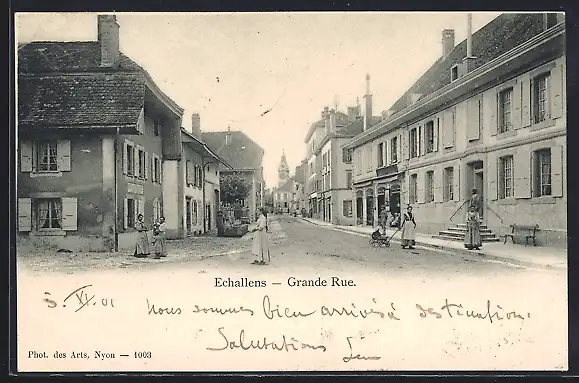 Echallens — Grande Rue.
5. XI. 01 Nous sommes bien arrivés à destination.
Salutations
Phot. des Arts, Nyon — 1003